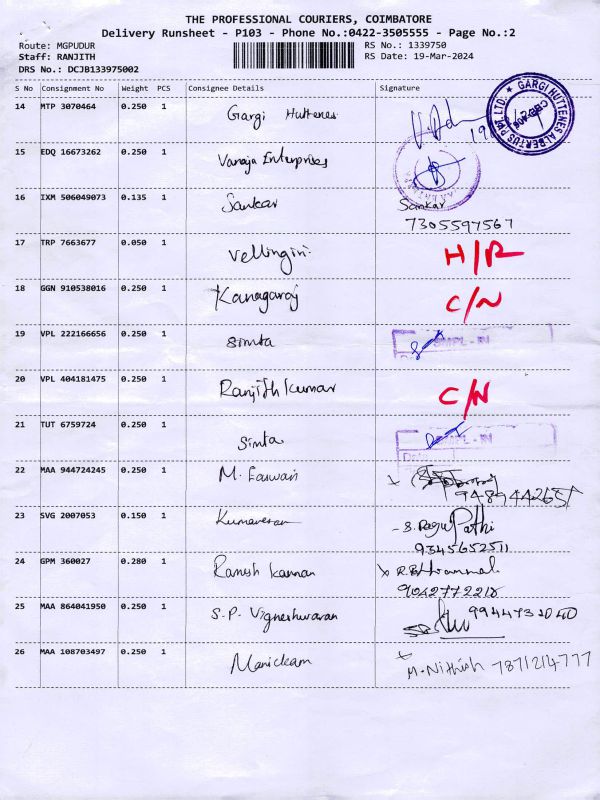 THE PROFESSIONAL COURIERS, COIMBATORE
Delivery Runsheet - P103 - Phone No.:0422-3505555 - Page No.:2
Route: MGPUDUR
RS No.: 1339750
Staff: RANJITH
RS Date: 19-Mar-2024
DRS No.: DCJB133975002
S No Consignment No Weight PCS Consignee Details Signature
14 MTP 3070464 0.250 1 Gargi Huttenes
GARGI HUTTENES ALBERTUS PVT. LTD.
15 EDQ 16673262 0.250 1 Vanaja Enterprises
16 IXM 506049073 0.135 1 Sankar Sankar
7305597567
17 TRP 7663677 0.050 1 Vellingiri H/R
18 GGN 910538016 0.250 1 Kanagaraj C/N
19 VPL 222166656 0.250 1 Simta SMPL - IN
20 VPL 404181475 0.250 1 Ranjith kumar C/N
21 TUT 6759724 0.250 1 Simta
22 MAA 944724245 0.250 1 M.
23 SVG 2007053 0.150 1 Kumaresan S. Ragu Pathi
9345652511
24 GPM 360027 0.280 1 Ramesh Kannan
9042772218
25 MAA 864041950 0.250 1 S.P. Vigneshwaran
26 MAA 108703497 0.250 1 Manickam M. Nithish 7871214777